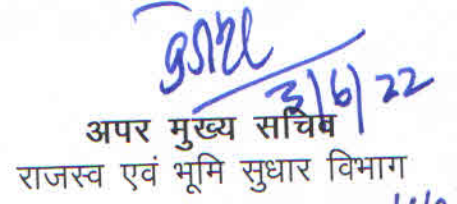 3/6/22
अपर मुख्य सचिव
राजस्व एवं भूमि सुधार विभाग